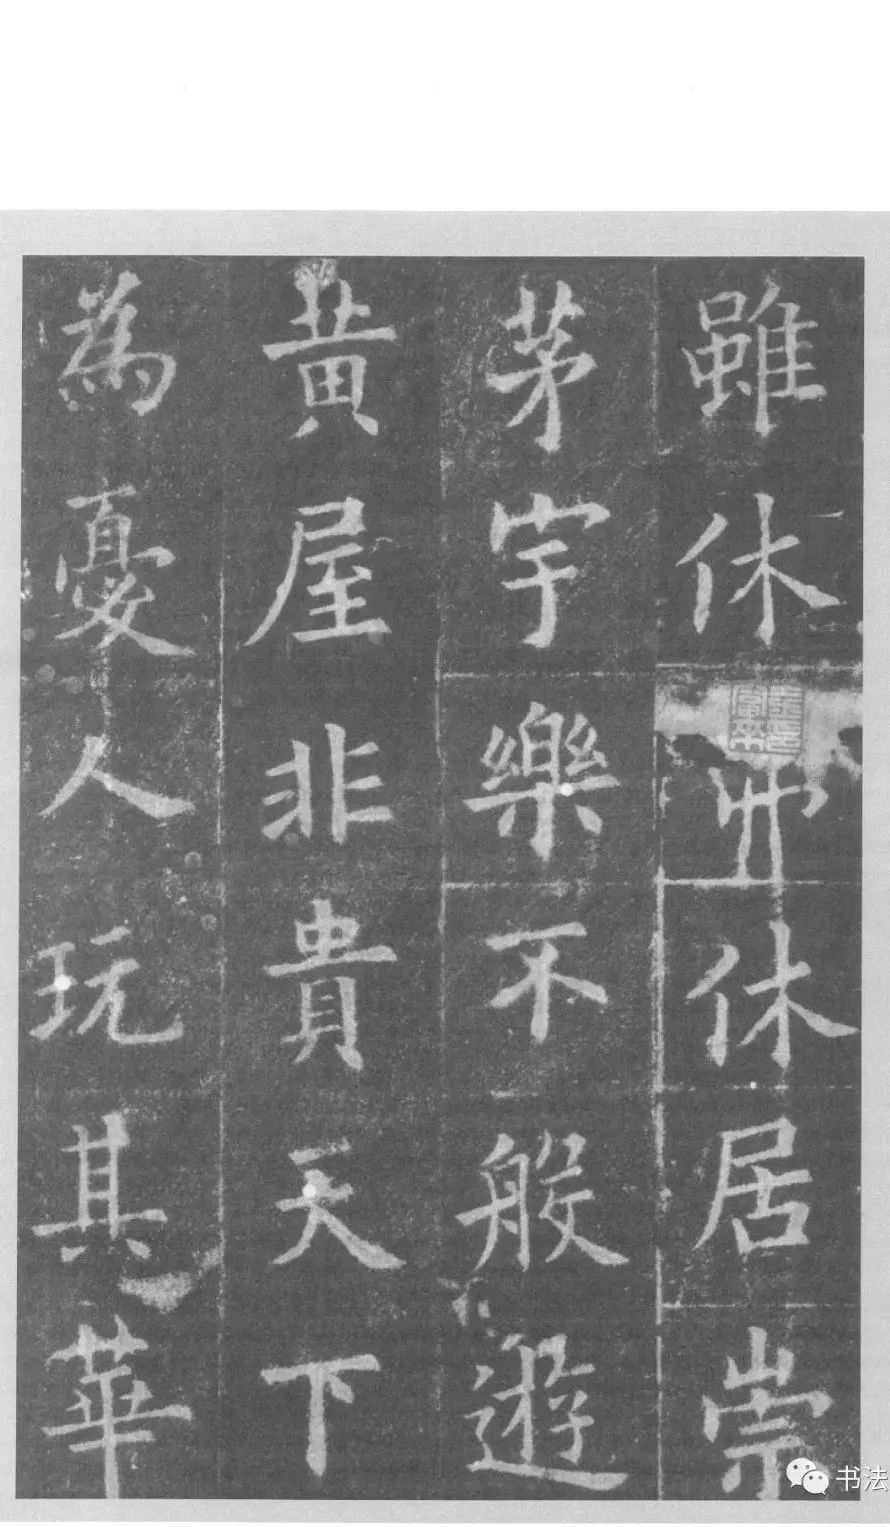 雖休弗休居崇
茅宇樂不般遊
黃屋非貴天下
為憂人玩其華
书法